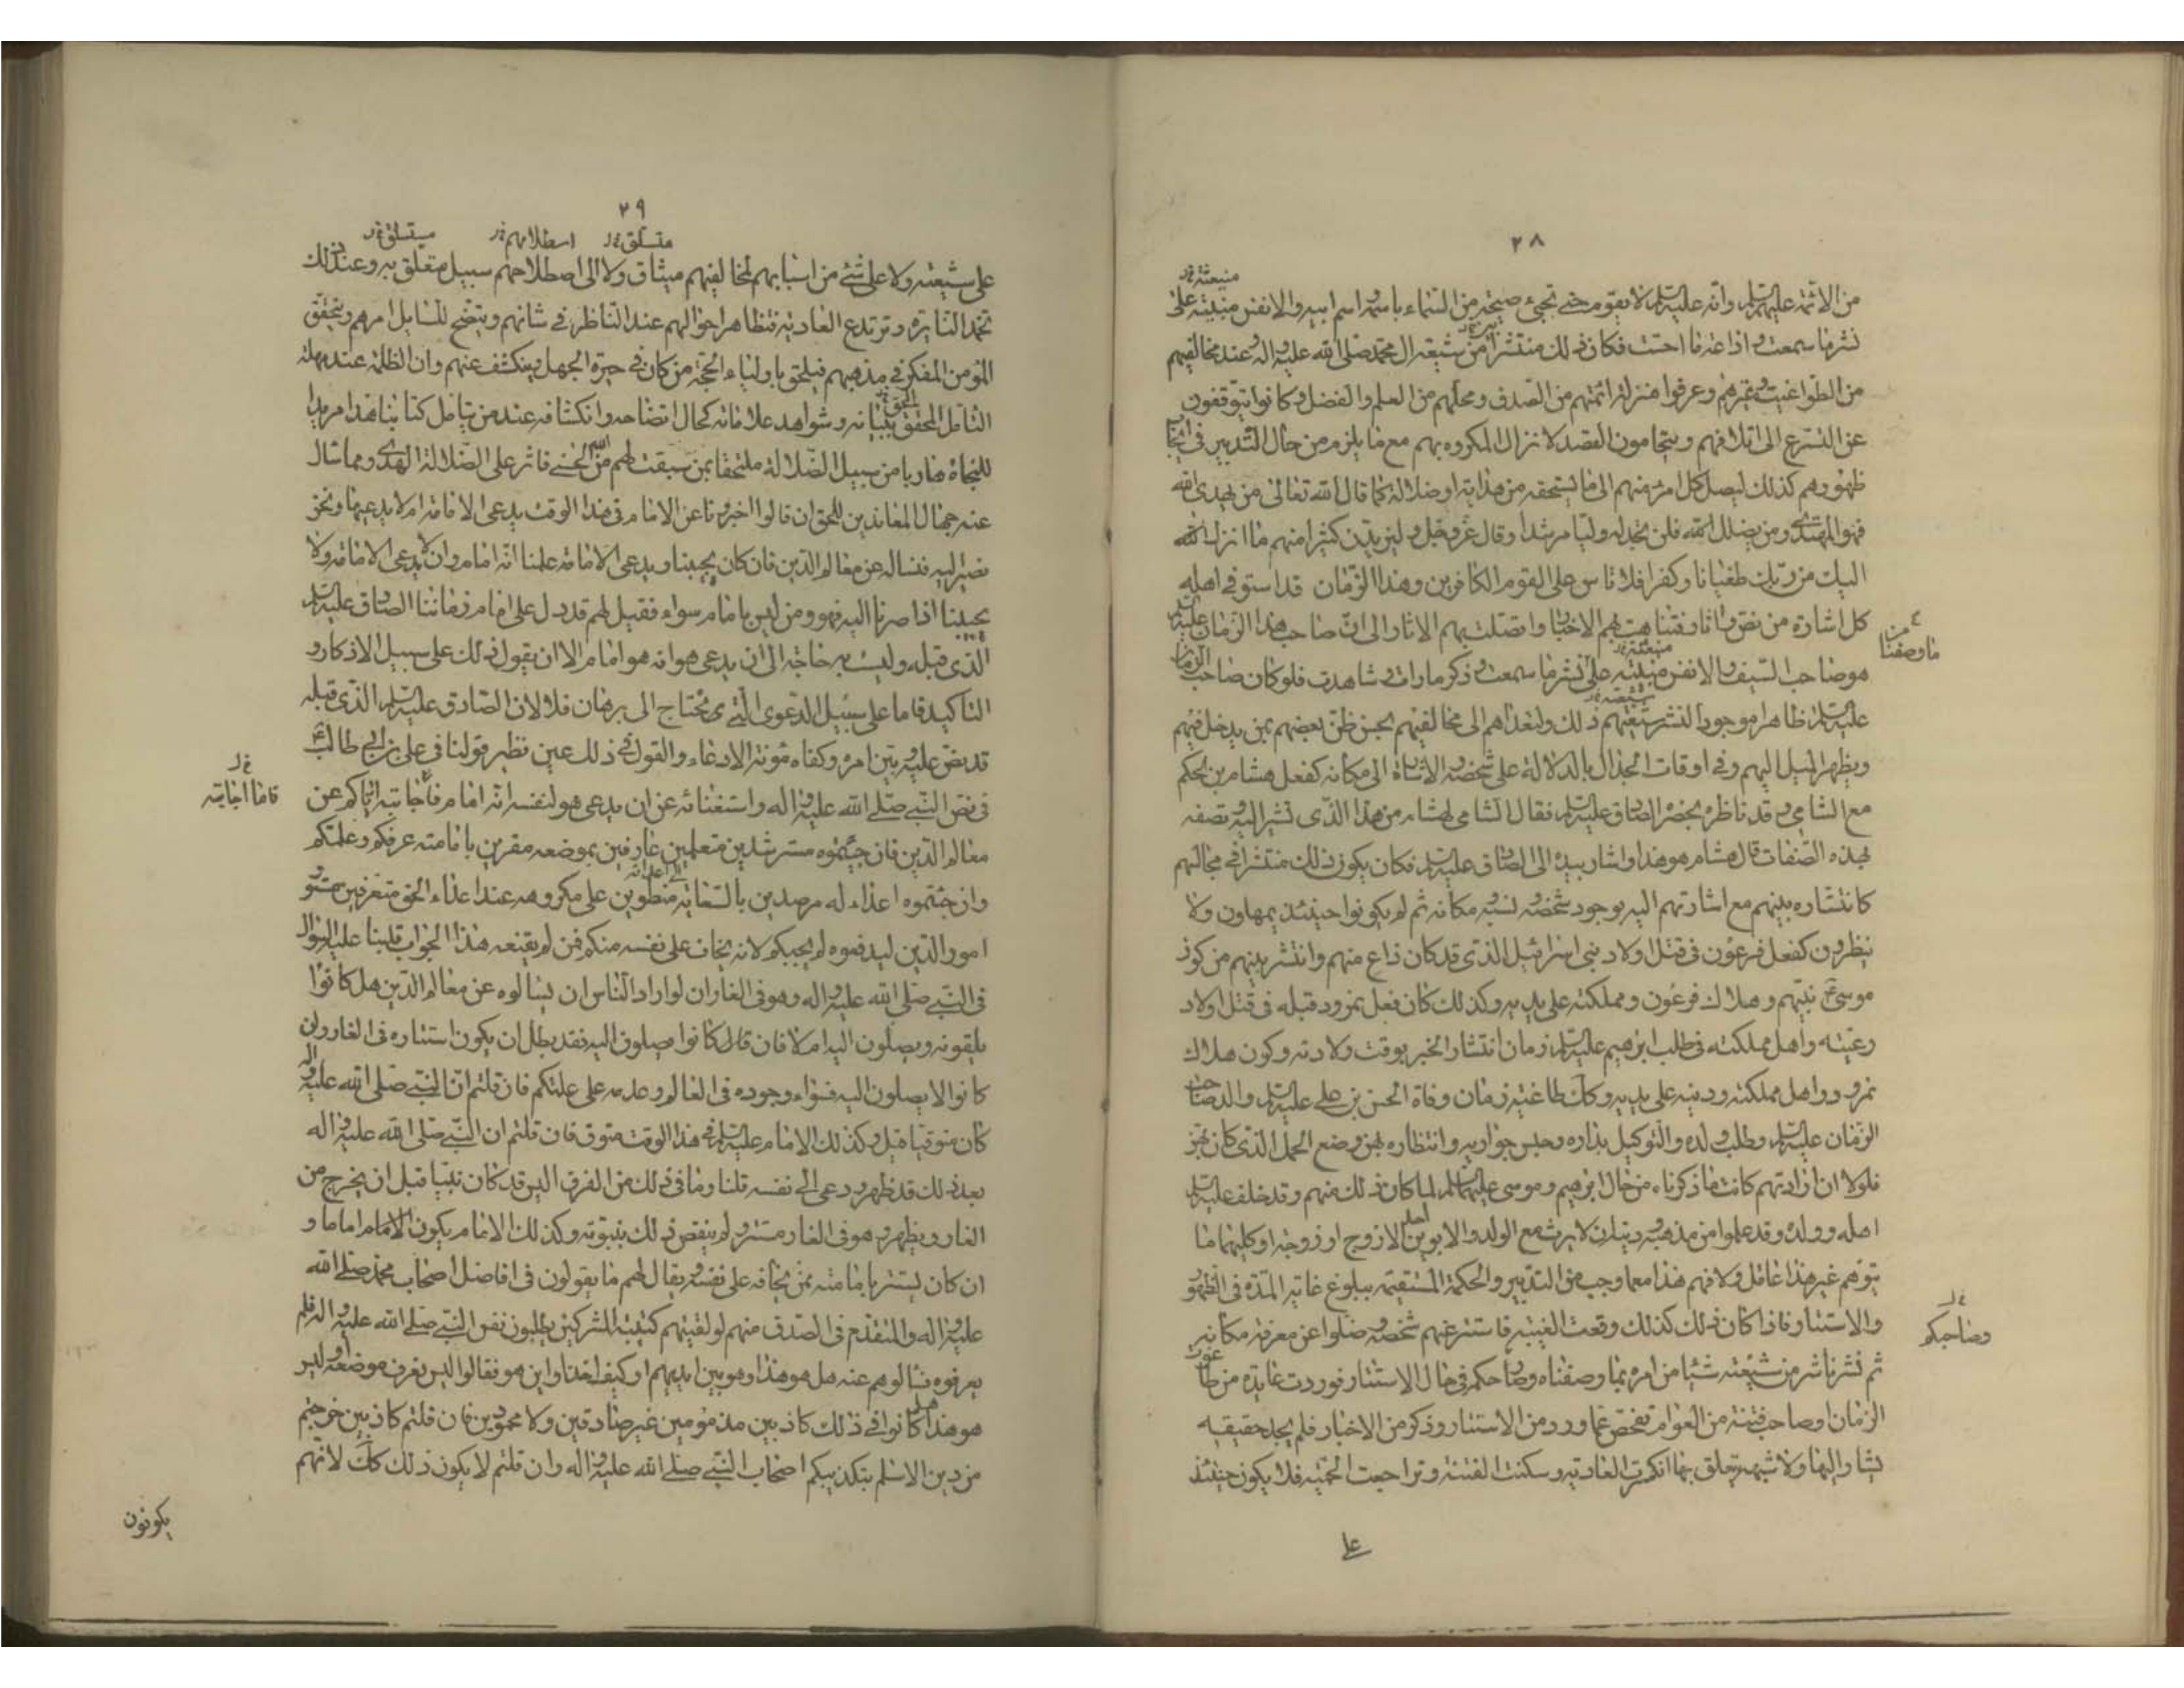 ٢٨
منبعثة خ ل
من الائمة عليهم السلم وانه عليه السلم لا يقوم حتى تجيء صيحة من السماء باسمه واسم ابيه والانفس منبئة على
نشر ما سمعت واذاعة ما احست فكان ذلك منتشرا من شيعة ال محمد صلى الله عليه واله وعند مخالفيهم
من الطواغيت وغيرهم وعرفوا منزلة ائمتهم من الصدق ومحلهم من العلم والفضل وكانوا يتوقفون
عن التسرع الى اتلافهم ويتحامون القصد لانزال المكروه بهم مع ما يلزم من حال التدبير في ايجاب
ظهورهم كذلك ليصل كل امرء منهم الى ما يستحقه من هداية او ضلالة كما قال الله تعالى من يهدى الله
فهو المهتد ومن يضلل الله فلن تجد له وليا مرشدا وقال عز وجل وليزيدن كثيرا منهم ما انزل الله
اليك من ربك طغيانا وكفرا فلا تاس على القوم الكافرين وهذا الزمان قد استوفى اهله
كل اشارة من نص واثار فتناهت بهم الاخبار واتصلت بهم الاثار الى ان صاحب هذا الزمان عليه السلم
من ما وصفنا
هو صاحب السيف والانفس منبئة على نشر ما سمعت وذكر ما رات وشاهدت فلو كان صاحب الزمان
عليه السلم ظاهرا موجودا لنشر شيعتهم ذلك ولتعداهم الى مخالفيهم بحسن ظن بعضهم بمن يدخل فيهم
ويظهر الميل اليهم وفي اوقات الجدال بالدلالة على شخصه والاشارة الى مكانه كفعل هشام بن الحكم
مع الشامي وقد ناظره بحضرة الصادق عليه السلم فقال الشامي لهشام من هذا الذى تشير اليه وتصفه
بهذه الصفات قال هشام هو هذا واشار بيده الى الصادق عليه السلم فكان يكون ذلك منتشرا في مجالسهم
كانتشاره بينهم مع اشارتهم اليه بوجود شخصه ونسبه ومكانه ثم لم يكونوا حينئذ يمهلون ولا
ينظرون كفعل فرعون في قتل اولاد بنى اسرائيل الذى قد كان ذاع منهم وانتشر بينهم من كون
موسى ع نبيهم وهلاك فرعون ومملكته على يديه وكذلك كان فعل نمرود قبله في قتل اولاد
رعيته واهل مملكته في طلب ابرهيم عليه السلم زمان انتشار الخبر بوقت ولادته وكون هلاك
نمرود واهل مملكته ودينه على يديه وكك طاغية زمان وفاة الحسن بن على عليه السلم والد صاحب
الزمان عليه السلم وطلب ولده والتوكيل بداره وحبس جواريه وانتظاره بهن وضع الحمل الذى كان بهن
فلولا ان ارادتهم كانت ما ذكرناه من حال ابرهيم وموسى عليهما السلم لما كان ذلك منهم وقد خلف عليه السلم
اهله وولده وقد علموا من مذهبه ودينه ان لا يرث مع الولد والابوين احد الا زوج او زوجة او كليهما ما
يتوهم غير هذا عاقل ولا فهم هذا مع ما وجب من التدبير والحكمة المستقيمة ببلوغ غاية المدة في الظهور
والاستتار فاذا كان ذلك كذلك وقعت الغيبة فاستتر عنهم شخصه وضلوا عن معرفة مكانه
خ ل وصاحبكم
ثم نشر ناشر من شيعته شيئا من امره بما وصفناه وصاحبكم في حال الاستتار فوردت عادية من طاغوت
الزمان او صاحب فتنة من العوام تفحص عما ورد من الاستتار وذكر من الاخبار فلم يجد حقيقة
يشار اليها ولا شبهة يتعلق بها انكسرت العادية وسكنت الفتنة وتراجعت الحمية فلا يكون حينئذ
على
٢٩
متسلق خ ل اسطلامهم خ ل ميتسلق خ ل
على شيعته ولا على شئ من اسبابهم لمخالفيهم ميثاق ولا الى اصطلاحهم سبيل متعلق به وعند ذلك
تخمد النائرة وترتدع العادية فتظاهر احوالهم عند الناظر في شانهم ويتضح للسايل امرهم ويتحقق
المؤمن المفكر في مذهبهم فيلحق باولياء الحجة من كان في حيرة الجهل وينكشف عنهم وان الظلمة عند مهلة
التامل للحق ببيانه وشواهد علاماته كحال اتضاحه وانكشافه عند من يتامل كتابنا هذا مريدا
للنجاة هاربا من سبيل الضلالة ملتحقا بمن سبقت لهم من الله الحسنى فاثر على الضلالة الهدى ومما سال
عنه جهال المعاندين للحق ان قالوا اخبرونا عن الامام في هذا الوقت يدعى الامامة ام لا يدعيها ونحن
نصير اليه فنساله عن معالم الدين فان كان يجيبنا ويدعى الامامة علمنا انه امام وان لا يدعى الامامة ولا
يجيبنا اذا صرنا اليه فهو ومن ليس بامام سواء فقيل لهم قد دل على امام زماننا الصادق عليه السلم
الذى قبله وليست به حاجة الى ان يدعى هو انه هو امام الا ان يقول ذلك على سبيل الاذكار و
التاكيد فاما على سبيل الدعوى التى يحتاج الى برهان فلا لان الصادق عليه السلم الذى قبله
قد نص عليه وبين امره وكفاه مؤنة الادعاء والقول في ذلك عين نظير قولنا في على بن ابى طالب ع
في نص النبي صلى الله عليه واله واستغنائه عن ان يدعى هو لنفسه انه امام فاما اجابته اياكم عن
خ ل فاما اجابته
معالم الدين فان جئتموه مسترشدين متعلمين عارفين بموضعه مقرين بامامته عرفكم وعلمكم
وان جئتموه اعداء له مرصدين بالسعاية الى اعدائه منطوين على مكروهه عند اعداء الحق متعرفين مستور
امور الدين ليدفعوه لم يجبكم لانه يخاف على نفسه منكم فمن لم يقنعه هذا الجواب قلبنا عليه السؤال
في النبي صلى الله عليه واله وهو في الغار ان لو اراد الناس ان يسالوه عن معالم الدين هل كانوا
يلقونه ويصلون اليه ام لا فان قال كانوا يصلون اليه فقد بطل ان يكون استتاره في الغار وان
كانوا لا يصلون اليه فسواء وجوده في العالم وعدمه على علتكم فان قلتم ان النبي صلى الله عليه واله
كان متوقيا قيل وكذلك الامام عليه السلم في هذا الوقت متوق فان قلتم ان النبي صلى الله عليه واله
بعد ذلك قد ظهر ودعى الى نفسه قلنا وما في ذلك من الفرق اليس قد كان نبيا قبل ان يخرج من
الغار ويظهر وهو في الغار مستتر ولم ينقض ذلك نبوته وكذلك الامام يكون الامام اماما و
ان كان يستتر بامامته ممن يخافه على نفسه ويقال لهم ما يقولون في افاضل اصحاب محمد صلى الله
عليه واله والمتقدم في الصدق منهم لو لقيتهم كتيبة المشركين يطلبون نفس النبي صلى الله عليه واله فلم
يعرفوه فسالوهم عنه هل هو هذا وهو بين ايديهم او كيف اخذ واين هو فقالوا ليس نعرف موضعه او ليس
هو هذا هل كانوا في ذلك كاذبين مذمومين غير صادقين ولا محمودين فان قلتم كاذبين خرجتم
من دين الاسلم بتكذيبكم اصحاب النبي صلى الله عليه واله وان قلتم لا يكون ذلك كك لانهم
يكونون